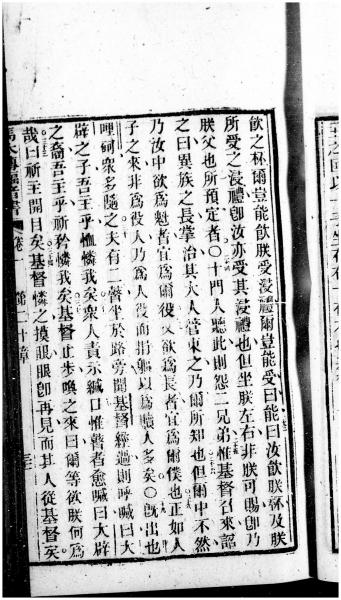 飲之杯爾豈能飲朕受浸禮爾豈能受曰能曰汝飲朕杯及朕
所受之浸禮卽汝亦受其浸禮也但坐朕左右非朕可賜卽乃
朕父也所預定者〇十門人聽此則怨二兄弟惟基督召來詔
之曰異族之長掌治其大人管束之乃爾所知也但爾中不然
乃汝中欲為魁者宜為爾役又欲為長者宜為爾僕也正如人
子之來非為役人乃為人役而捐軀以為贖人多矣〇旣出也
哩𠸄衆多隨之夫有二瞽坐於路旁聞基督經過則呼喊曰大
辟之子吾王乎恤憐我矣衆人責示緘口惟瞽者愈喊曰大辟
之裔吾王乎祈矜憐我矣基督止步喚之來曰爾等欲朕何為
哉曰祈王開目矣基督憐之摸眼眼卽再見而其人從基督矣
書 卷一 第二十章